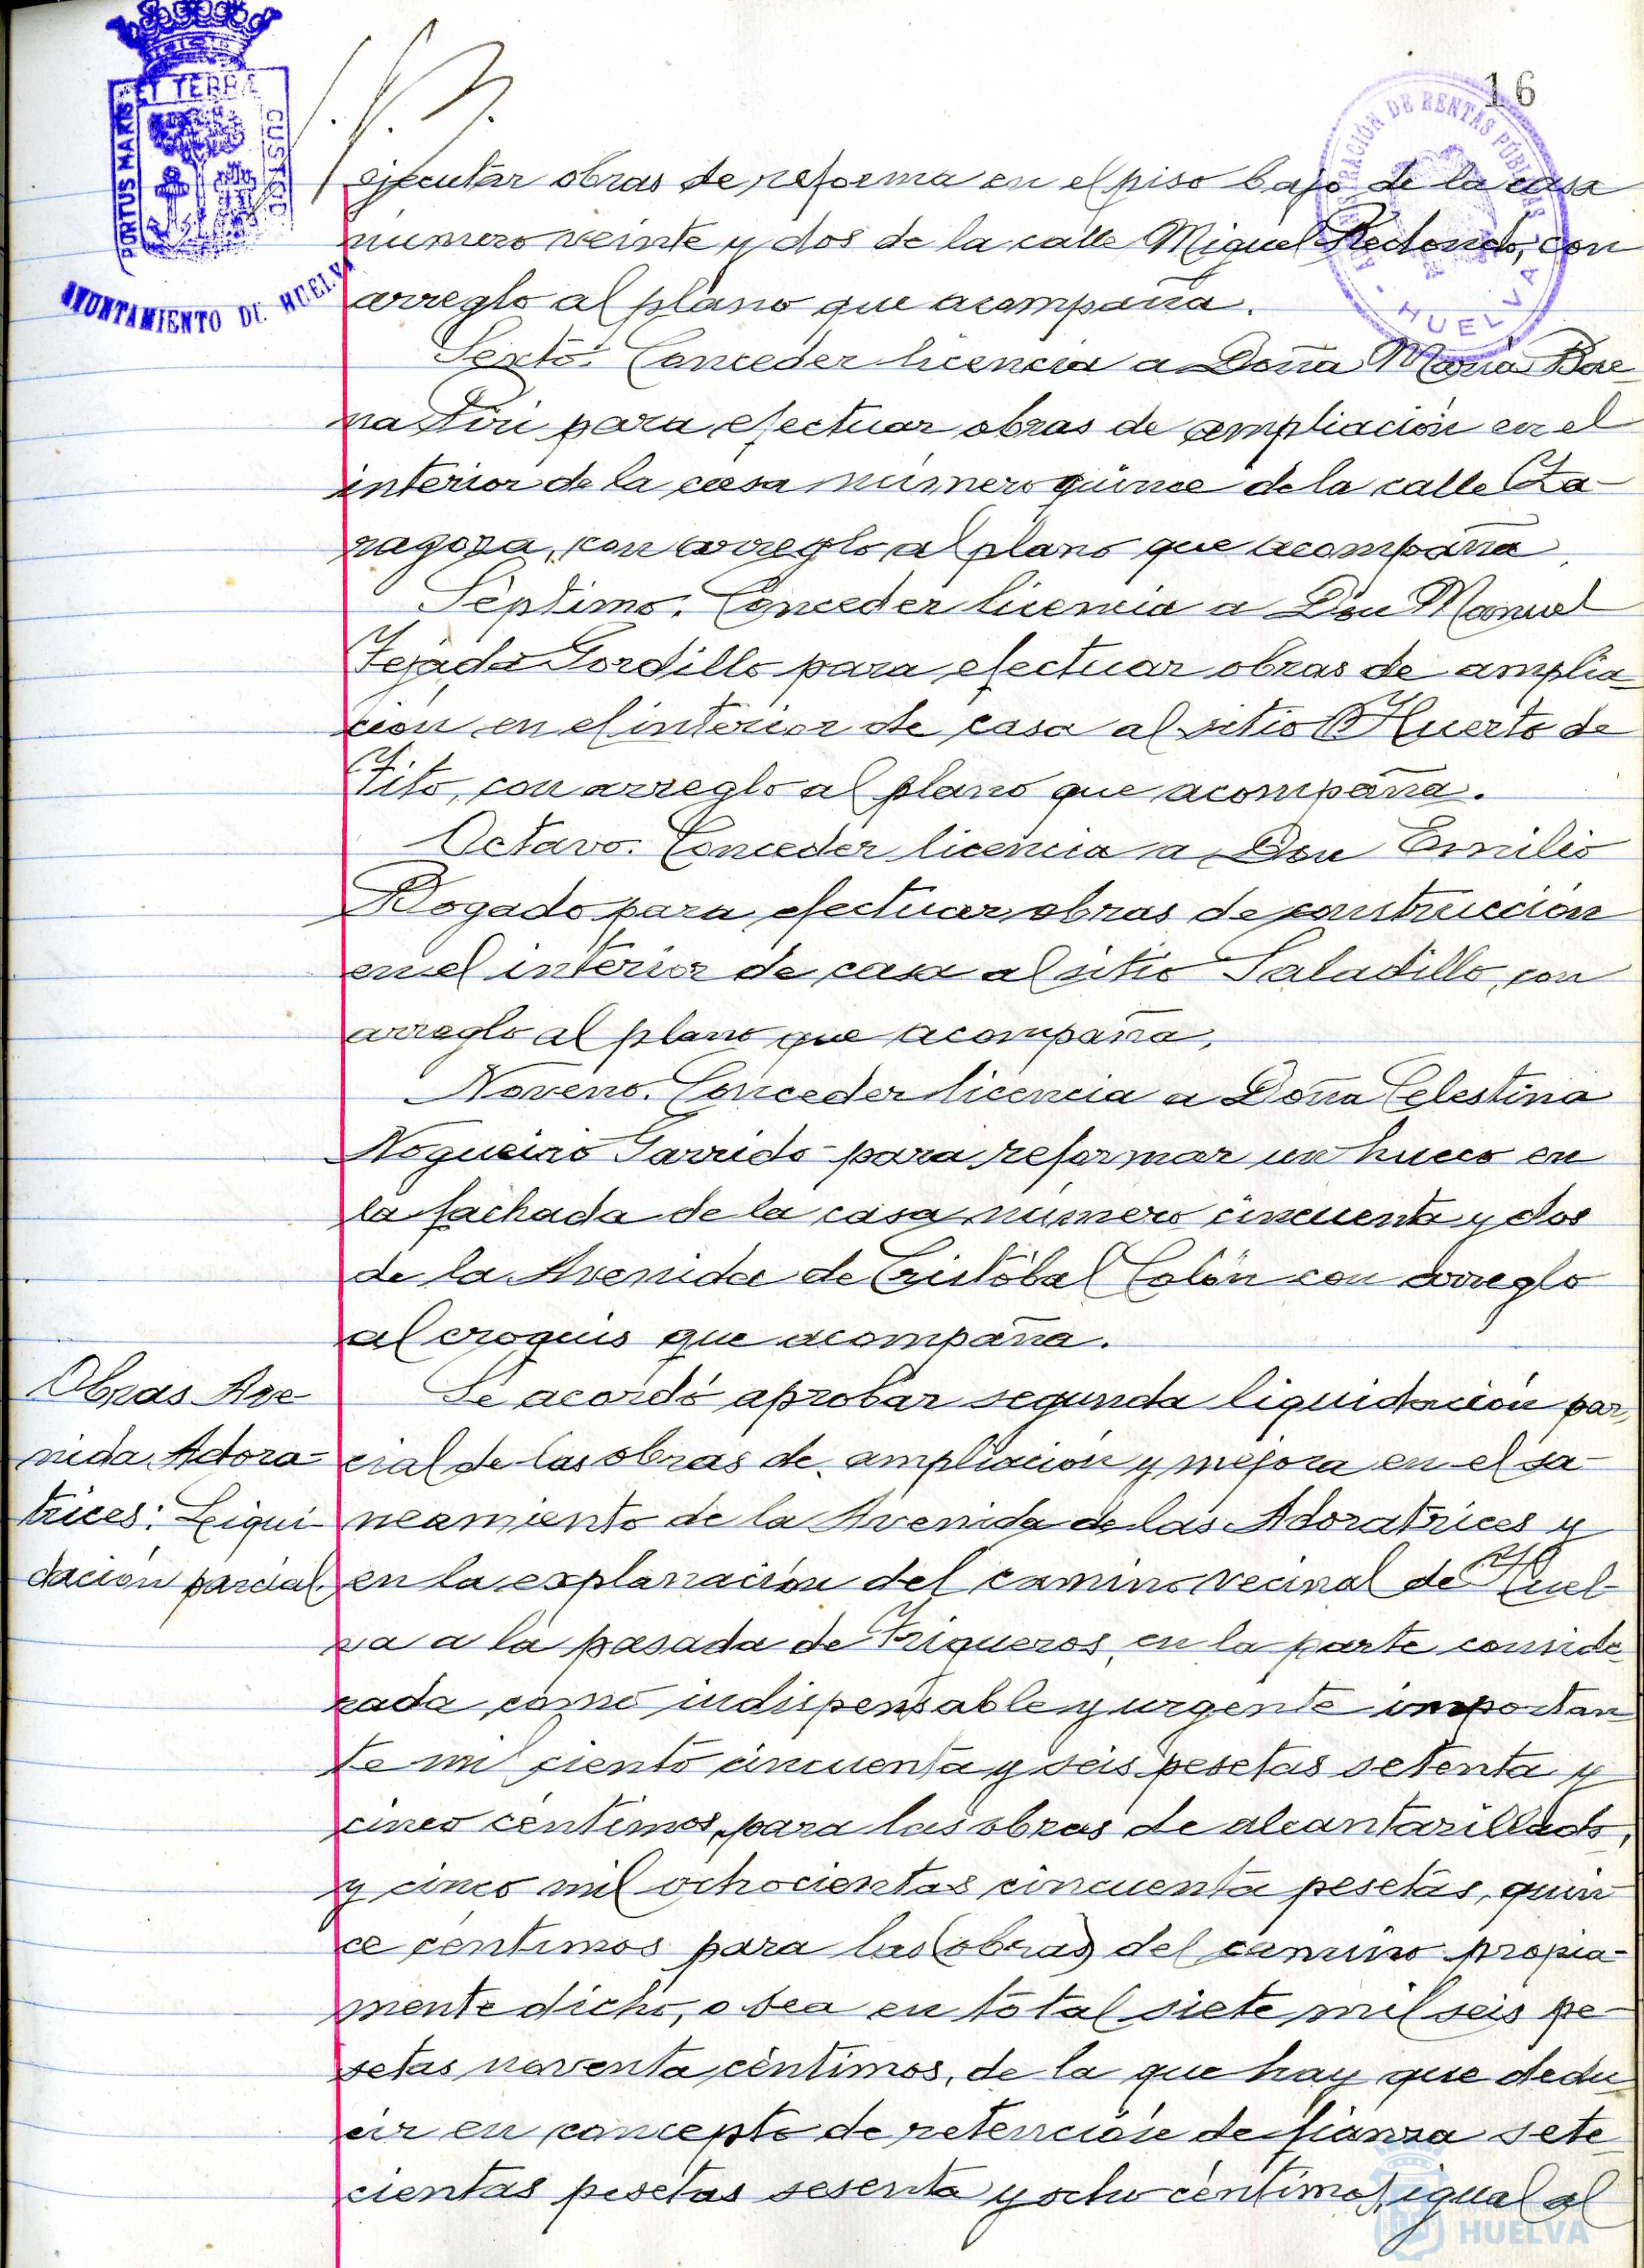 16
PORTUS MARIS ET TERRÆ CUSTODIA
AYUNTAMIENTO DE HUELVA
ADMINISTRACIÓN DE RENTAS PÚBLICAS
HUELVA
ejecutar obras de reforma en el piso bajo de la casa
número veinte y dos de la calle Miguel Redondo, con
arreglo al plano que acompaña.
Sexto. Conceder licencia a Doña María Bae-
na Piri para efectuar obras de ampliación en el
interior de la casa número quince de la calle Za-
ragoza, con arreglo al plano que acompaña.
Séptimo. Conceder licencia a Don Manuel
Tejada Gordillo para efectuar obras de amplia-
ción en el interior de casa al sitio Huerto de
Tito, con arreglo al plano que acompaña.
Octavo. Conceder licencia a Don Emilio
Bogado para efectuar obras de construcción
en el interior de casa al sitio Saladillo, con
arreglo al plano que acompaña.
Noveno. Conceder licencia a Doña Celestina
Nogueiro Garrido para reformar un hueco en
la fachada de la casa número cincuenta y dos
de la Avenida de Cristóbal Colón con arreglo
al croquis que acompaña.
Obras Ave-
nida Adora-
trices: Liqui-
dación parcial.
Se acordó aprobar segunda liquidación par-
cial de las obras de ampliación y mejora en el sa-
neamiento de la Avenida de las Adoratrices y
en la explanación del camino vecinal de Huel-
va a la pasada de Trigueros, en la parte conside-
rada como indispensable y urgente importan-
te mil ciento cincuenta y seis pesetas setenta y
cinco céntimos, para las obras de alcantarillado,
y cinco mil ochocientas cincuenta pesetas, quin-
ce céntimos para las (obras) del camino propia-
mente dicho, o sea en total siete mil seis pe-
setas noventa céntimos, de la que hay que dedu-
cir en concepto de retención de fianza sete-
cientas pesetas sesenta y ocho céntimos, igual al
HUELVA